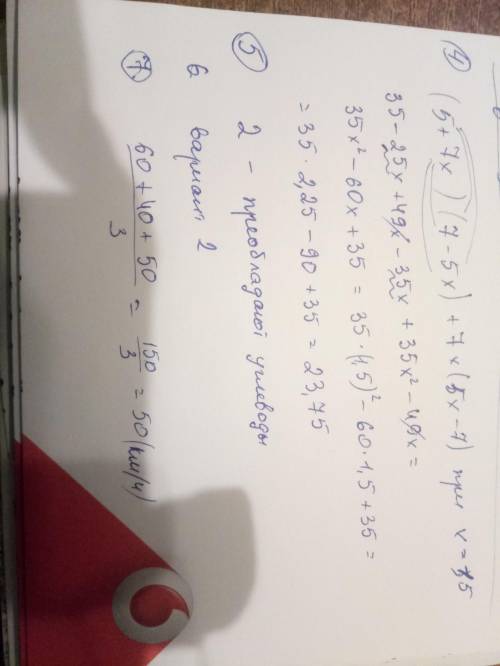 ④ (5+7x)(7-5x)+7x(5x-7) при x=1,5
35-25x+49x-35x+35x²-49x=
35x²-60x+35=35·(1,5)²-60·1,5+35=
=35·2,25-90+35=23,75
⑤ 2 - преобладают углеводы
6 вариант 2
⑦ (60+40+50)/3 = 150/3 = 50 (км/ч)